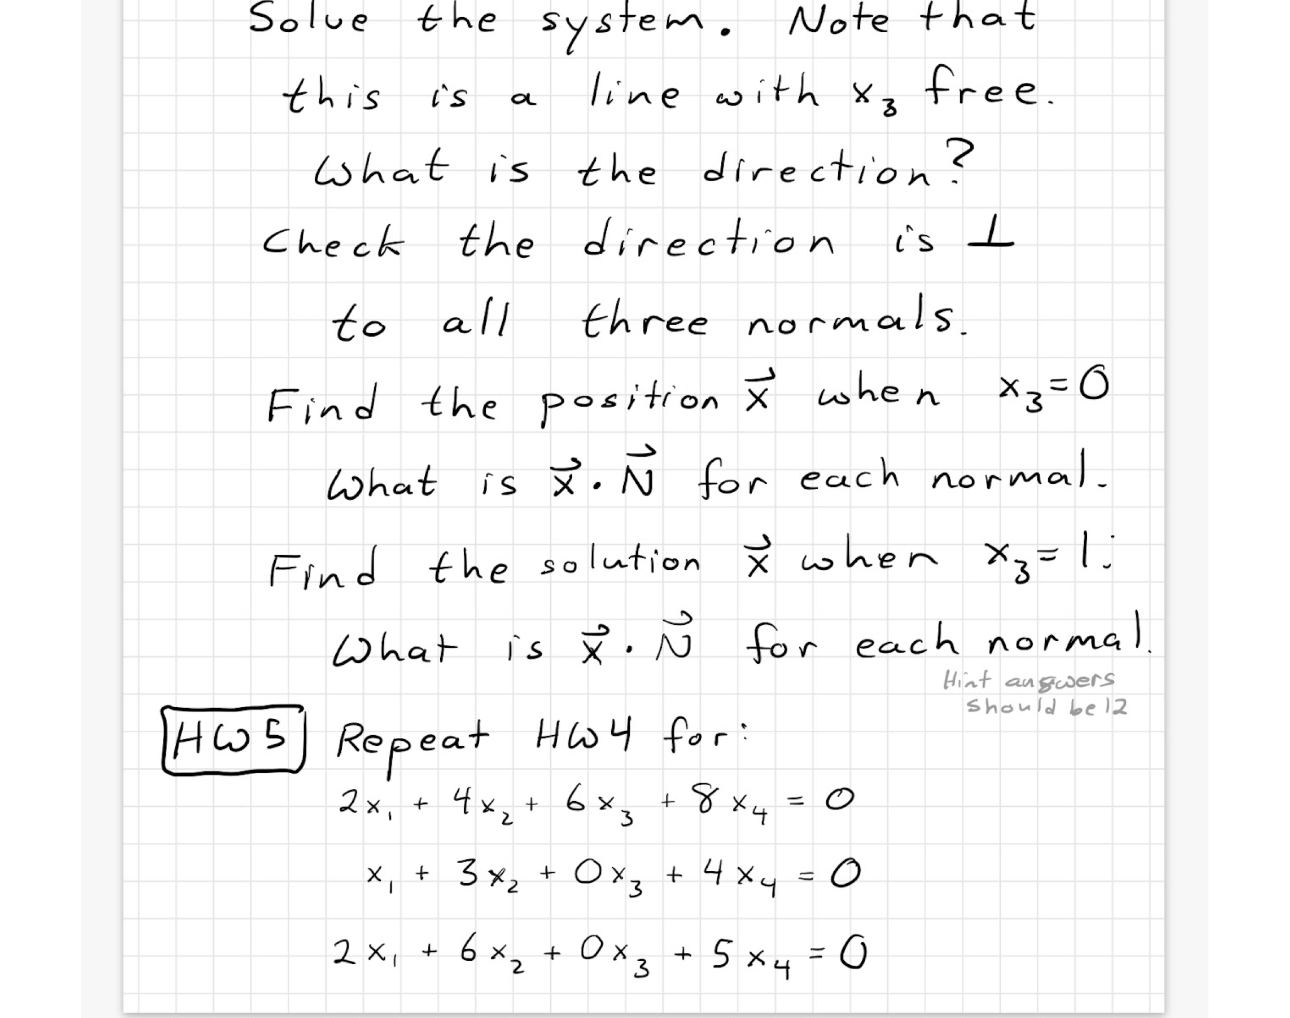 Solve the system. Note that
this is a line with x₃ free.
What is the direction?
Check the direction is ⊥
to all three normals.
Find the position x⃗ when x₃=0
What is x⃗·N⃗ for each normal.
Find the solution x⃗ when x₃=1:
What is x⃗·N⃗ for each normal.
Hint answers
should be 12
HW5 Repeat HW4 for:
2x₁ + 4x₂ + 6x₃ + 8x₄ = 0
x₁ + 3x₂ + 0x₃ + 4x₄ = 0
2x₁ + 6x₂ + 0x₃ + 5x₄ = 0